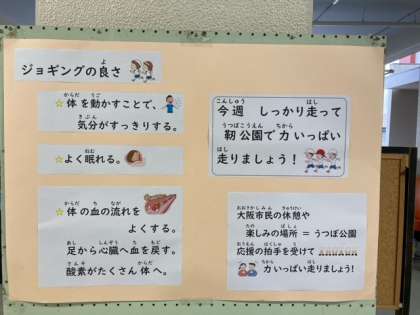 ジョギングの良さ
☆体を動かすことで、
気分がすっきりする。
☆よく眠れる。
☆体の血の流れを
よくする。
足から心臓へ血を戻す。
酸素がたくさん体へ。
今週 しっかり走って
靭公園で力いっぱい
走りましょう！
大阪市民の休憩や
楽しみの場所 = うつぼ公園
応援の拍手を受けて
力いっぱい走りましょう!